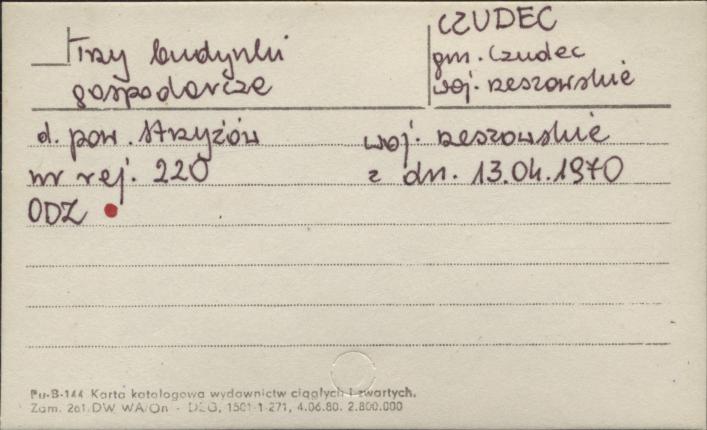 Trzy budynki
gospodarcze
CZUDEC
gm. Czudec
woj. rzeszowskie
d. pow. Strzyżów woj. rzeszowskie
nr rej. 220 z dn. 13.04.1970
ODZ
Pu-B-144 Karta katalogowa wydawnictw ciągłych i zwartych.
Zam. 261/DW WA/On - DEG, 1501-1-271, 4.06.80. 2.800.000